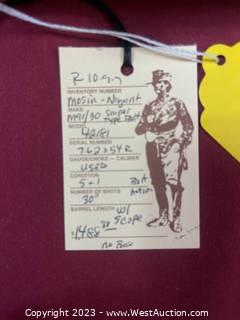 R-10-9-7
INVENTORY NUMBER
Mosin - Nagant
MAKE
M91/30 Sniper Type Bolt
MODEL
42181
SERIAL NUMBER
7.62x54R
GAUGE/CHOKE - CALIBER
USED
CONDITION
5+1 Bolt
NUMBER OF SHOTS Action
30"
BARREL LENGTH w/
$1488.00 Scope
no Box
Copyright 2023 - www.WestAuction.com